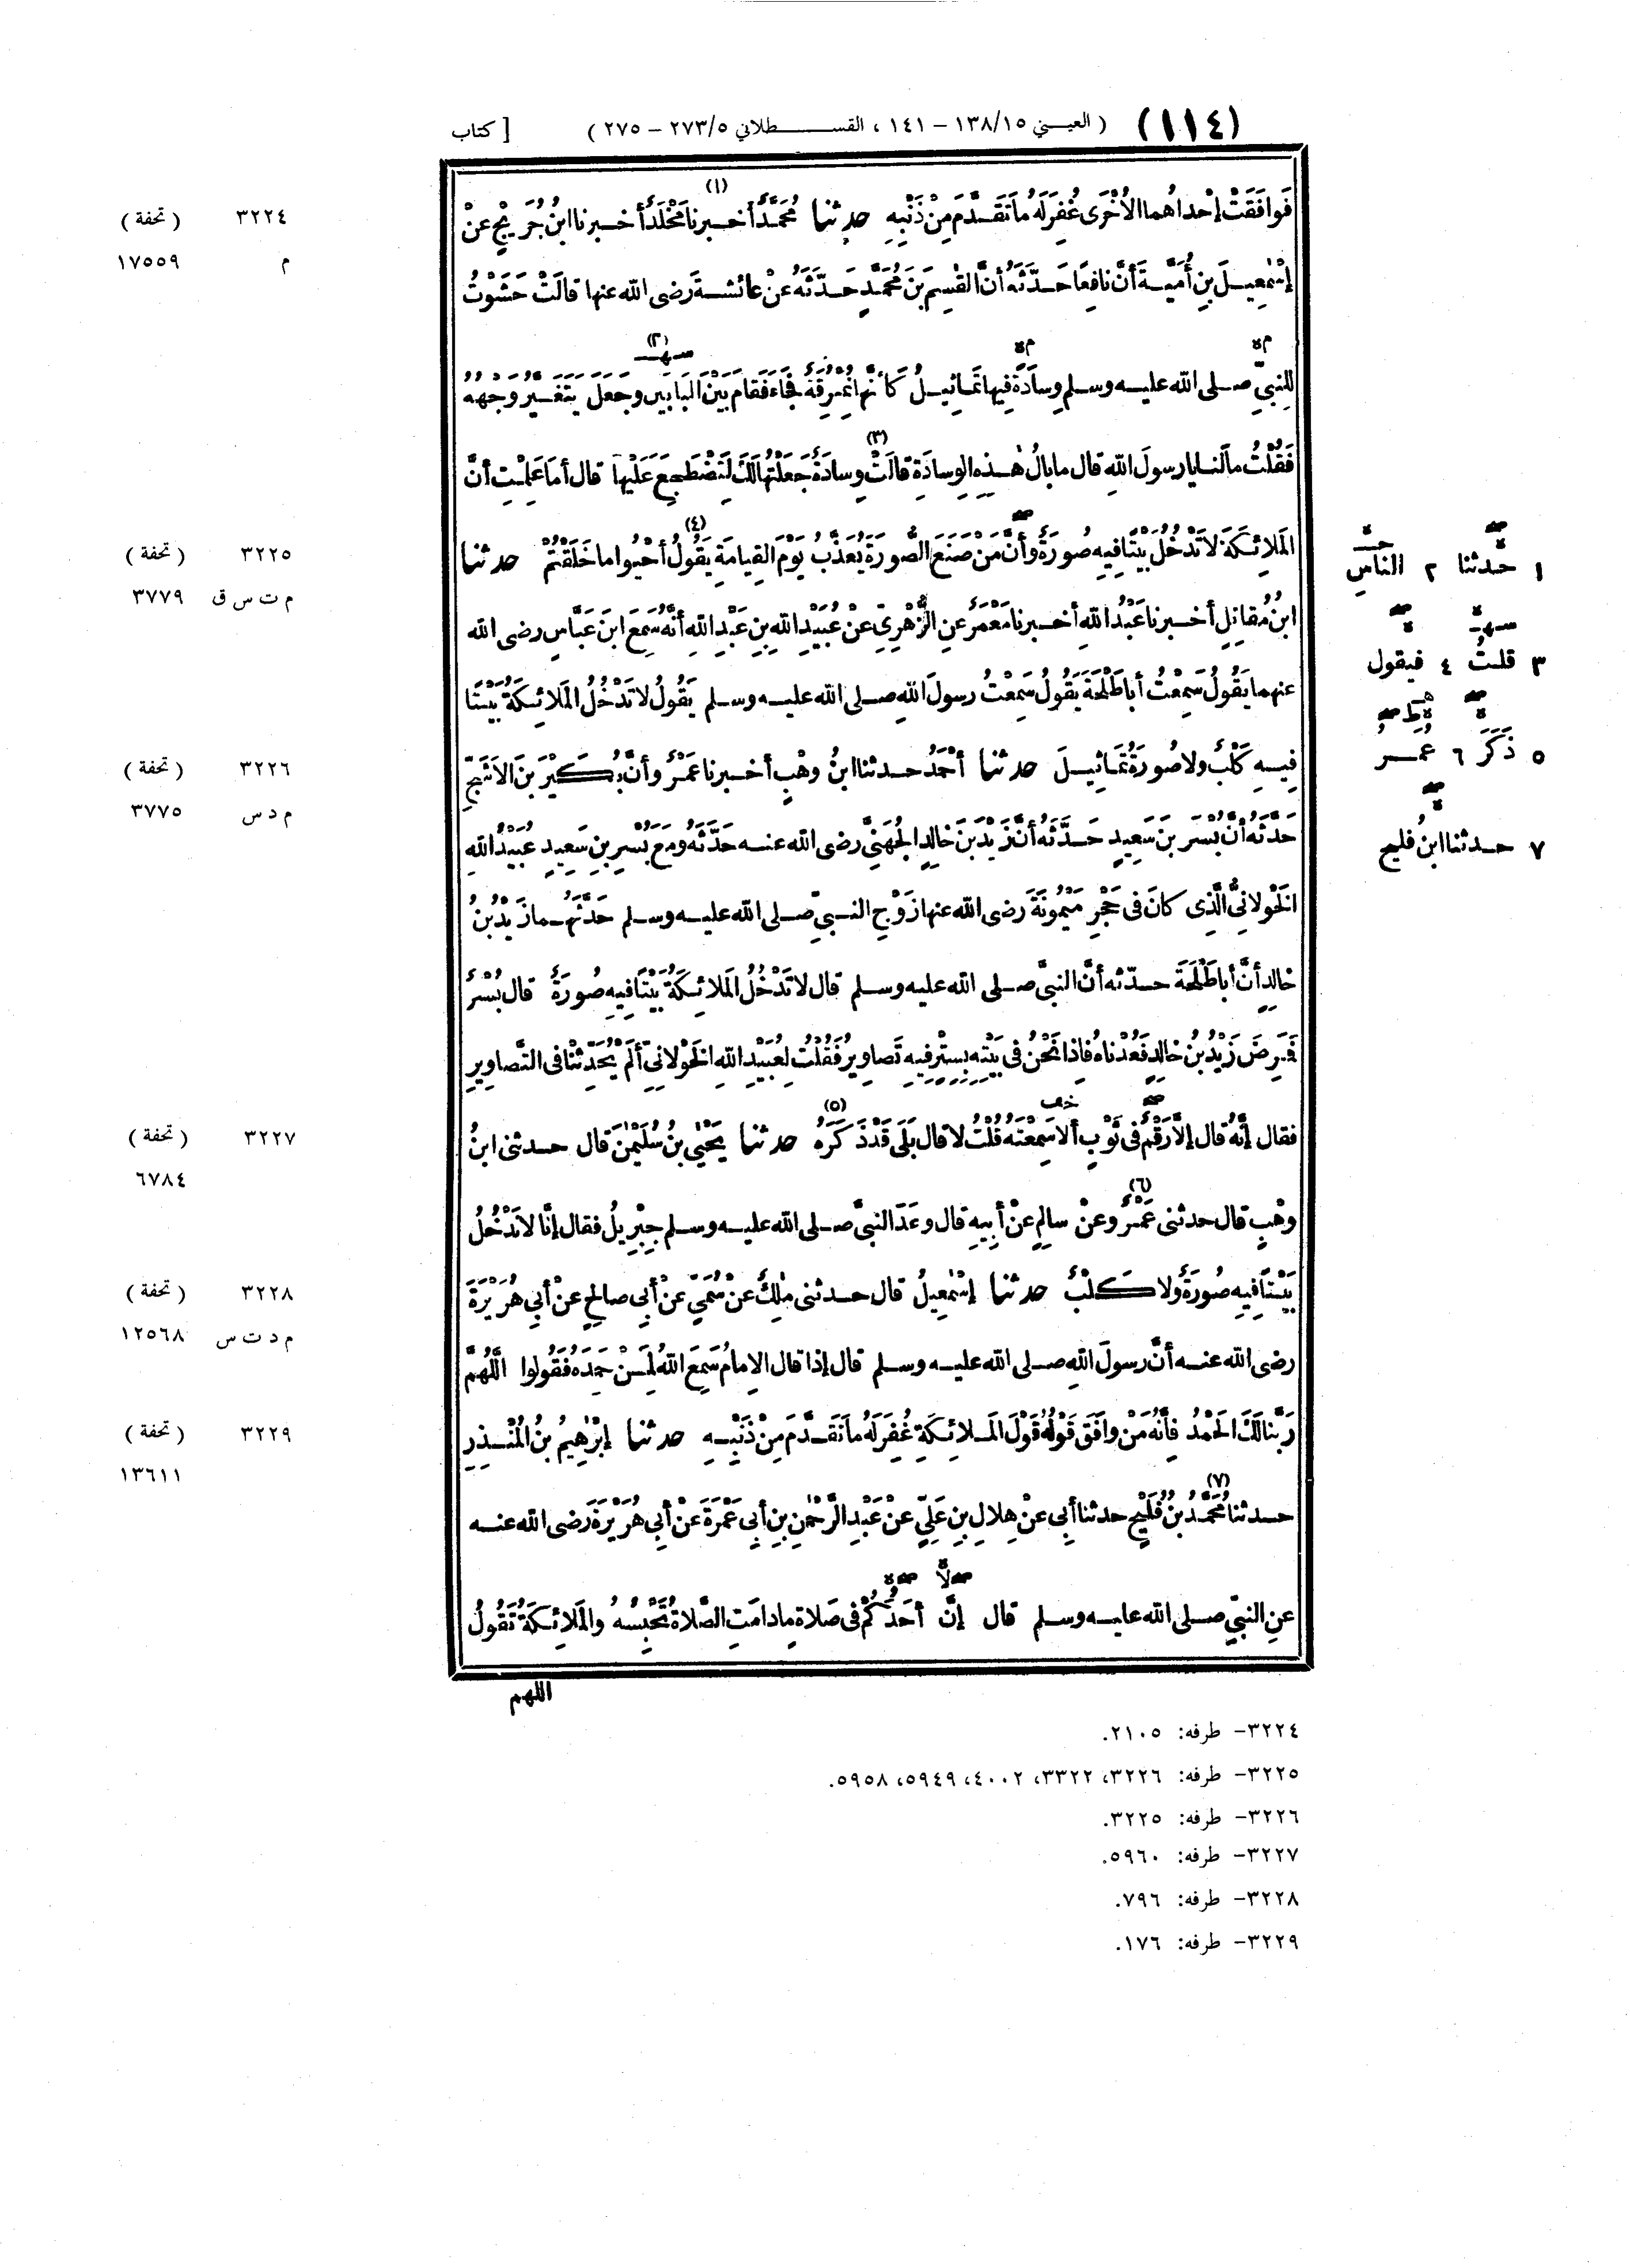 (١١٤) ( العيني ١٥/١٣٨ – ١٤١ ، القسطلاني ٥/٢٧٣ – ٢٧٥ ) [ كتاب
فَوافَقَتْ إحْداهُما الأُخْرَى غُفِرَ لَهُ ما تَقَدَّمَ مِنْ ذَنْبِهِ حدثنا مُحَمَّدٌ (١) أخبرنا مَخْلَدٌ أخبرنا ابنُ جُرَيْجٍ عنْ
إسْمٰعِيلَ بنِ أُمَيَّةَ أنَّ نافِعًا حَدَّثَهُ أنَّ القٰسِمَ بنَ مُحَمَّدٍ حَدَّثَهُ عنْ عائشةَ رضى الله عنها قالَتْ حَشَوْتُ
لِلنبيِّ صلى الله عليه وسلم وِسادَةً فِيها تَماثِيلُ كَأَنَّها نُمْرُقَةٌ فَجاءَ فَقامَ بَيْنَ البابَيْنِ (٢) وجَعَلَ يَتَغَيَّرُ وَجْهُهُ
فَقُلْتُ ما لَنا يا رسولَ اللهِ قال ما بالُ هٰذِهِ الوِسادَةِ قالَتْ (٣) وِسادَةٌ جَعَلْتُها لَكَ لِتَضْطَجِعَ عَلَيْها قال أما عَلِمْتِ أنَّ
المَلائِكَةَ لا تَدْخُلُ بَيْتًا فِيهِ صُورَةٌ وأنَّ مَنْ صَنَعَ الصُّورَةَ يُعَذَّبُ يَوْمَ القِيامَةِ يَقُولُ (٤) أحْيُوا ما خَلَقْتُمْ حدثنا
ابنُ مُقاتِلٍ أخبرنا عَبْدُ اللهِ أخبرنا مَعْمَرٌ عنِ الزُّهْرِىِّ عنْ عُبَيْدِ اللهِ بنِ عَبْدِ اللهِ أنَّهُ سَمِعَ ابنَ عَبَّاسٍ رضى الله
عنهما يَقُولُ سَمِعْتُ أبا طَلْحَةَ يَقُولُ سَمِعْتُ رسولَ اللهِ صلى الله عليه وسلم يَقُولُ لا تَدْخُلُ المَلائِكَةُ بَيْتًا
فِيهِ كَلْبٌ ولا صُورَةُ تَماثِيلَ حدثنا أحْمَدُ حدثنا ابنُ وهْبٍ أخبرنا عَمْرٌو أنَّ بُكَيْرَ بنَ الأَشَجِّ
حَدَّثَهُ أنَّ بُسْرَ بنَ سَعِيدٍ حَدَّثَهُ أنَّ زَيْدَ بنَ خالِدٍ الجُهَنِيَّ رضى الله عنه حَدَّثَهُ ومَعَ بُسْرِ بنِ سَعِيدٍ عُبَيْدُ اللهِ
الخَوْلانِيُّ الَّذِى كانَ فى حَجْرِ مَيْمُونَةَ رضى الله عنها زَوْجِ النبيِّ صلى الله عليه وسلم حَدَّثَهُما زَيْدُ بْنُ
خالِدٍ أنَّ أبا طَلْحَةَ حدّثه أنَّ النبيَّ صلى الله عليه وسلم قال لا تَدْخُلُ المَلائِكَةُ بَيْتًا فِيهِ صُورَةٌ قال بُسْرٌ
فَمَرِضَ زَيْدُ بنُ خالِدٍ فَعُدْناهُ فإذا نَحْنُ فى بَيْتِهِ بِسِتْرٍ فِيهِ تَصاوِيرُ فَقُلْتُ لِعُبَيْدِ اللهِ الخَوْلانِيِّ ألَمْ يُحَدِّثْنا فى التَّصاوِيرِ
فقال إنَّهُ قال إلاَّ رَقْمٌ فى ثَوْبٍ ألا سَمِعْتَهُ قُلْتُ لا قال بَلَى قَدْ ذَكَرَهُ (٥) حدثنا يَحْيٰي بنُ سُلَيْمٰنَ قال حدثنى ابنُ
وهْبٍ قال حدثنى عَمْرٌو (٦) عنْ سالِمٍ عنْ أبِيهِ قال وعَدَ النبيَّ صلى الله عليه وسلم جِبْرِيلُ فقال إنَّا لا نَدْخُلُ
بَيْتًا فِيهِ صُورَةٌ ولا كَلْبٌ حدثنا إسْمٰعِيلُ قال حدثنى مٰلِكٌ عنْ سُمَيٍّ عنْ أبى صالِحٍ عنْ أبِي هُرَيْرَةَ
رضى الله عنه أنَّ رسولَ اللهِ صلى الله عليه وسلم قال إذا قال الإمامُ سَمِعَ اللهُ لِمَنْ حَمِدَهُ فَقُولوا اللَّهُمَّ
رَبَّنا لَكَ الحَمْدُ فإنَّهُ مَنْ وافَقَ قَوْلُهُ قَوْلَ المَلائِكَةِ غُفِرَ لَهُ ما تَقَدَّمَ مِنْ ذَنْبِهِ حدثنا إبْرٰهِيمُ بنُ المُنْذِرِ
حدثنا مُحَمَّدُ (٧) بنُ فُلَيْحٍ حدثنا أبِى عنْ هِلالِ بنِ عَلِيٍّ عنْ عَبْدِ الرَّحْمٰنِ بنِ أبِى عَمْرَةَ عنْ أبِي هُرَيْرَةَ رضى الله عنه
عنِ النبيِّ صلى الله عليه وسلم قال إنَّ أحَدَكُمْ فى صَلاةٍ ما دامَتِ الصَّلاةُ تَحْبِسُهُ والمَلائِكَةُ تَقُولُ
اللهم
٣٢٢٤ ( تحفة )
م ١٧٥٥٩
٣٢٢٥ ( تحفة )
م ت س ق ٣٧٧٩
٣٢٢٦ ( تحفة )
م د س ٣٧٧٥
٣٢٢٧ ( تحفة )
٦٧٨٤
٣٢٢٨ ( تحفة )
م د ت س ١٢٥٦٨
٣٢٢٩ ( تحفة )
١٣٦١١
١ حدثنا ٢ الناسِ
٣ قلتُ ٤ فيقول
٥ ذَكَرَ ٦ عُمرُ
٧ حدثنا ابنُ فليح
٣٢٢٤– طرفه: ٢١٠٥.
٣٢٢٥– طرفه: ٣٢٢٦، ٣٣٢٢، ٤٠٠٢، ٥٩٤٩، ٥٩٥٨.
٣٢٢٦– طرفه: ٣٢٢٥.
٣٢٢٧– طرفه: ٥٩٦٠.
٣٢٢٨– طرفه: ٧٩٦.
٣٢٢٩– طرفه: ١٧٦.